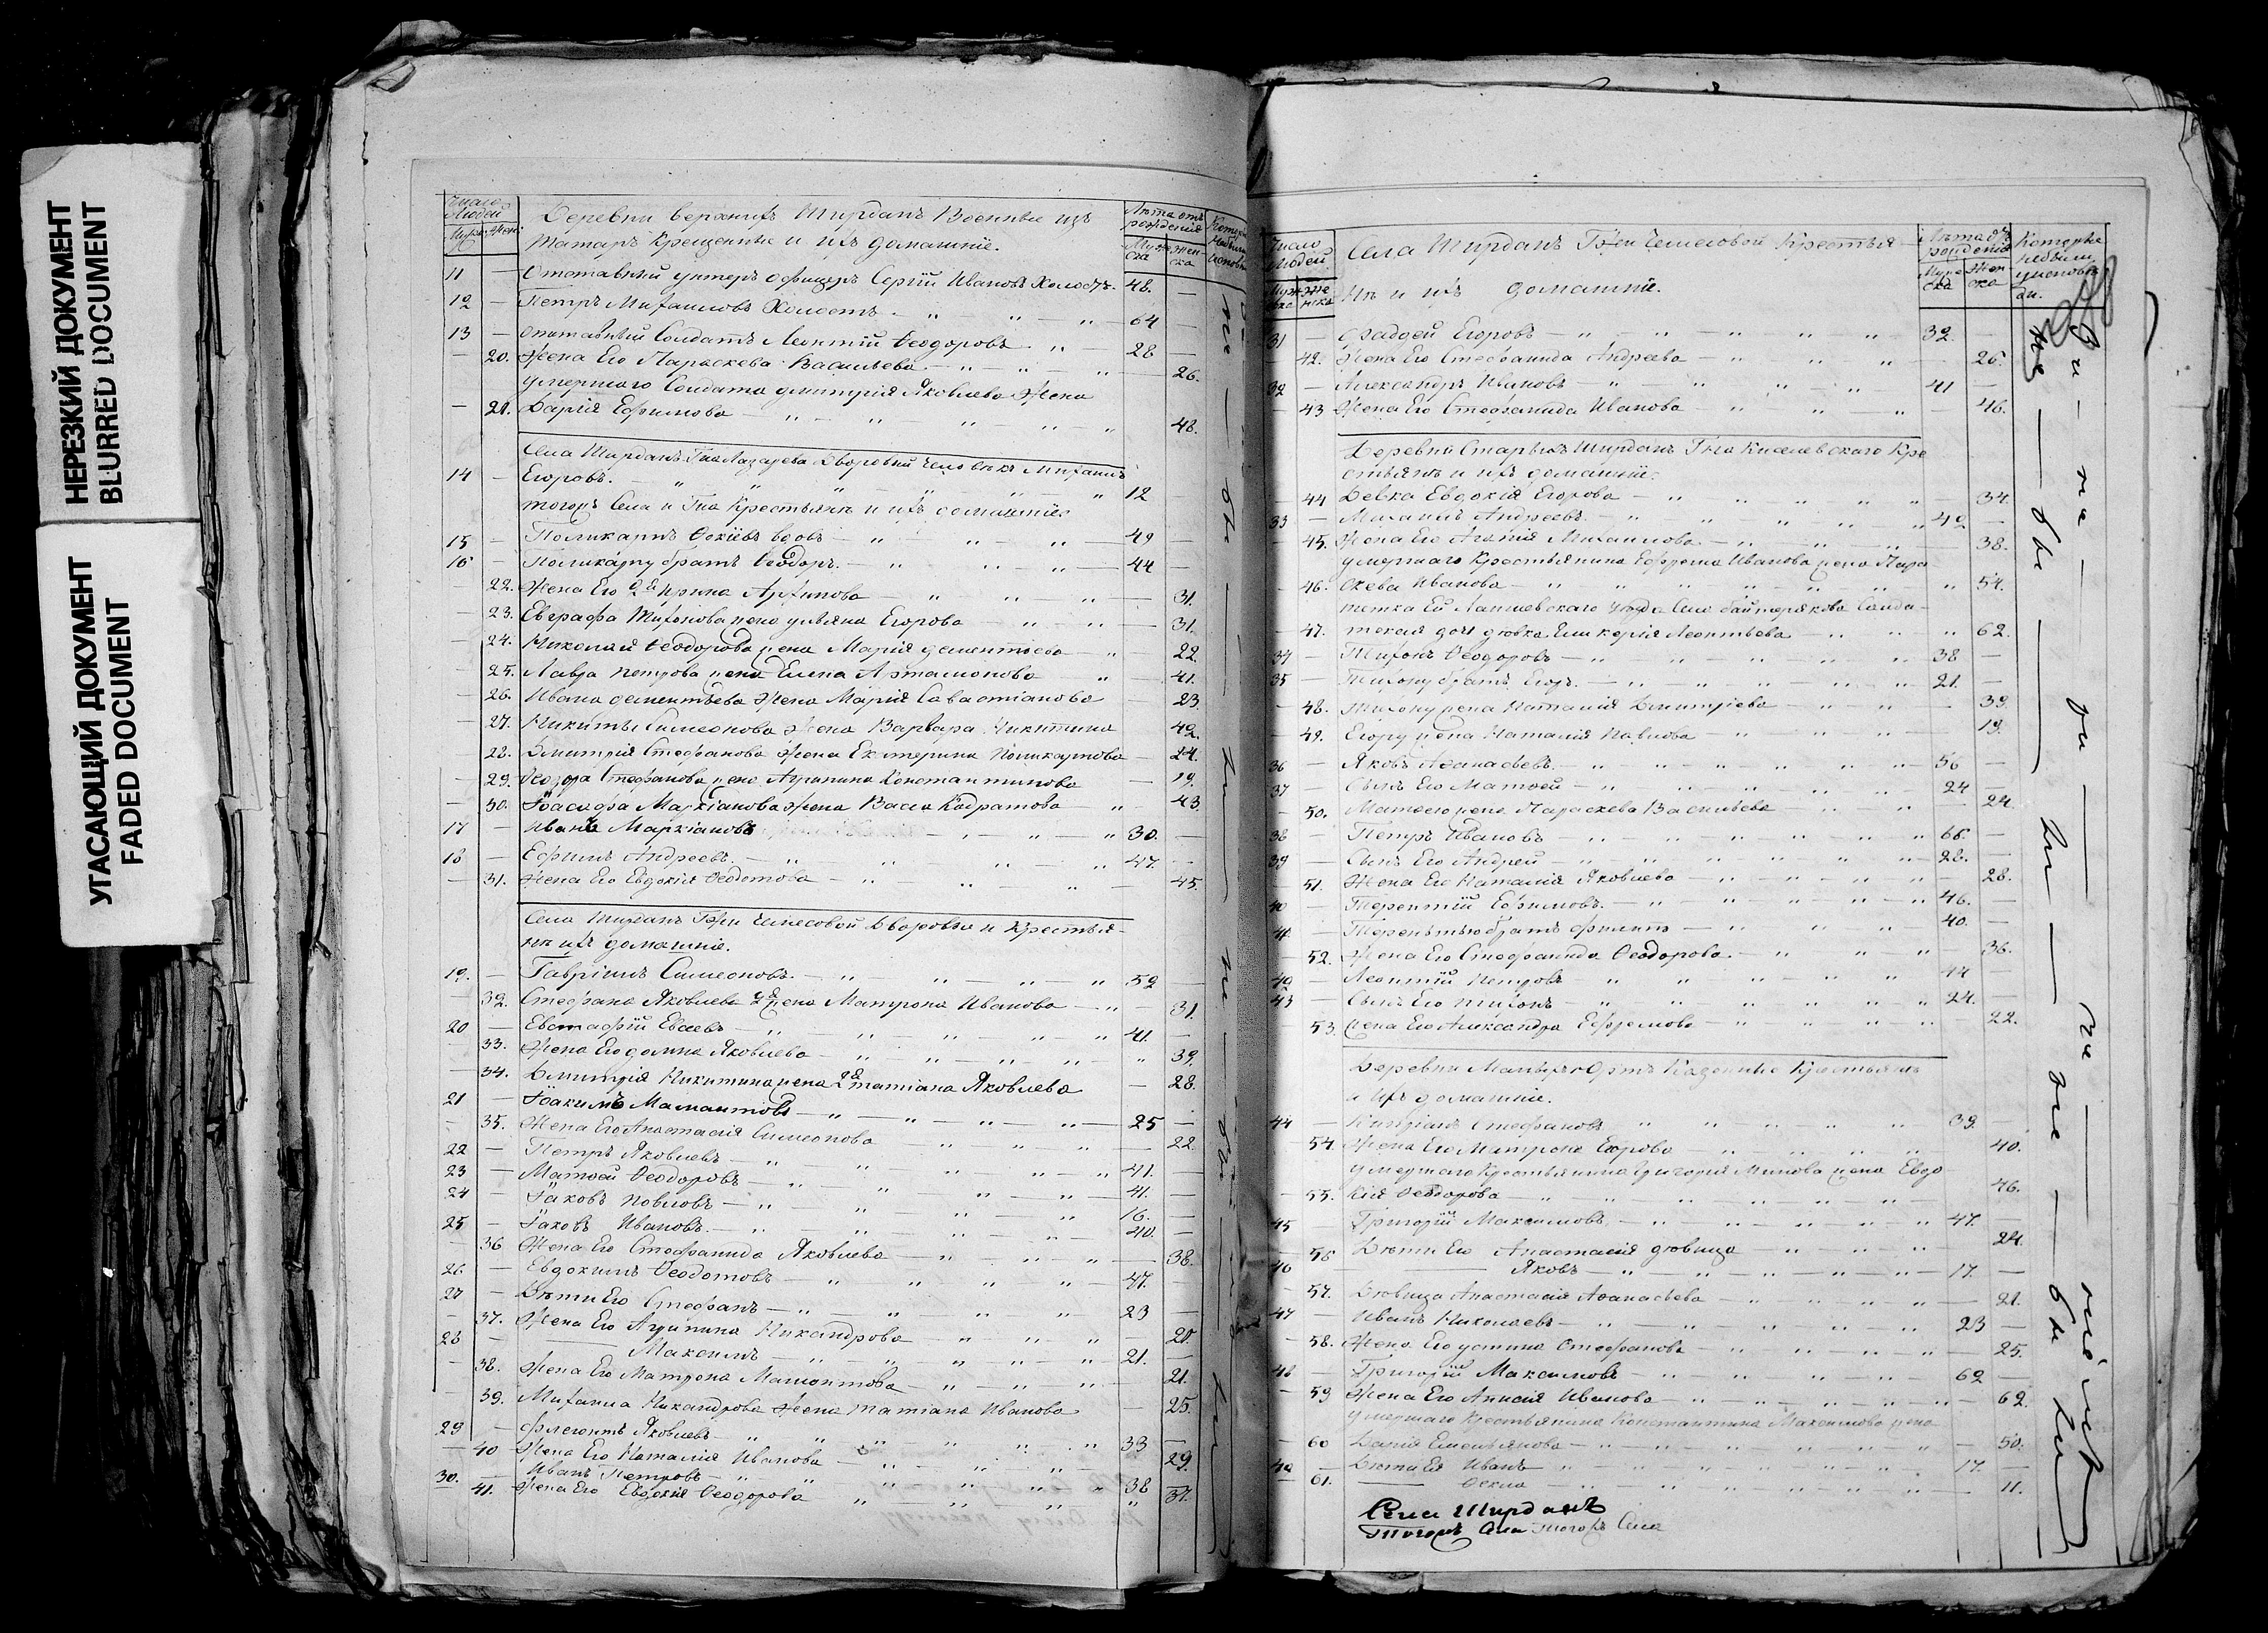 НЕРЕЗКИЙ ДОКУМЕНТ
BLURRED DOCUMENT
УГАСАЮЩИЙ ДОКУМЕНТ
FADED DOCUMENT
Число Людей
Деревни верхнихъ Ширданъ Военные изъ
Татаръ Крещенные и ихъ домашние.
Лѣта отъ рождения
11 — Отставный унтеръ офицеръ Сергiй Ивановъ Холостъ. 48. —
12 — Петръ Михаиловъ Холостъ — 64 —
13 — отставный Солдатъ Леонтiй Ѳеодоровъ 28 —
— 20. Жена Его Параскева Васильева — 26.
умершаго Солдата Димитрiя Яковлева Жена
— 21. Дарiя Ефимова — 48.
Села Ширданъ Гна Лазарева Дворовый человѣкъ Михаилъ
14 — Егоровъ. — 12
тогожъ Села и Гна Крестьяне и ихъ домашнiе
15 — Поликарпъ вдовъ — 49 —
16 — Поликарпу братъ Ѳеодоръ. — 44 —
22. Жена Его 2я Ирина — 31.
— 23. Евграфа Тихонова жена Ульяна Егорова — 31.
— 24. Николая Ѳеодорова жена Марiя Дементьева — 22.
— 25. Лавра Петрова жена Елена Артамонова 41.
— 26. Ивана Дементьева Жена Марiя Савастiанова 23.
— 27. Никиты Симеонова Жена Варвара Никитина 42.
— 28. Димитрiя Стефанова Жена Екатерина Поликарпова 24.
— 29. Ѳеодора Стефанова жена Агрипина Константинова 19.
— 30. Iоасафа Маркiанова Жена Васса Кодратова 43.
17 — Иванъ Маркiановъ 30. —
18 — Ефимъ Андреевъ. — 47. —
— 31. Жена Его Евдокiя Ѳеодотова — 45.
Села Ширданъ Гжи Чемесовой Дворовые и Крестья-
не ихъ домашнiе.
19. — Гаврiилъ Симеоновъ. — 59 —
— 32. Стефана Яковлева 2я жена Матрона Иванова — 31.
20 — Евстафiй — 41. —
— 33. Жена Его Домна Яковлева — 39.
— 34. Димитрiя Никитина жена 2я Татiана Яковлева — 28.
21 — Iоакимъ Мамантовъ — 25 —
— 35. Жена Его Анастасiя Симеонова 22.
22 — Петръ Яковлевъ — 41. —
23 — Матѳей Ѳеодоровъ — 41. —
24 — Iаковъ Павловъ — 16. —
25 — Iаковъ Ивановъ. — 40. —
— 36 Жена Его Стефанида Яковлева — 38.
26 — Евдокимъ Ѳеодотовъ — 47.
27 — Дѣти Его Стефанъ — 23 —
— 37. Жена Его Агрипина Никандрова — 20.
28 — Максимъ — 21. —
— 38. Жена Его Матрона Мамонтова 21.
— 39. Михаила Никандрова Жена Татiана Иванова — 25.
29 — Флегонтъ Яковлевъ — 33 —
— 40 Жена Его Наталiя Иванова — 29.
30. — Иванъ Петровъ — 38 —
41. Жена Его Евдокiя Ѳеодорова 37.
Число Людей
Села Ширданъ Гжи Чемесовой Крестья-
не и ихъ домашнiе.
Лѣта отъ рождения
31 — Фаддей Егоровъ — 32. —
— 42. Жена Его Стефанида Андреева — 26.
32 — Александръ Ивановъ — 41 —
— 43 Жена Его Стефанида Иванова — 46.
Деревни Старыхъ Ширданъ Гна Киселевскаго Кре
стьяне и ихъ домашнiе.
— 44 Девка Евдокiя Егорова — 34.
33 — Михаилъ Андреевъ. — 42. —
— 45. Жена Его Агафiя Михаилова. — 38.
умершаго Крестьянина Ефрема Иванова жена Пара
— 46. скева Иванова — 54.
тетка Ей Лаишевскаго уезда Села Солда-
— 47. Леонтьева — 62.
34 — Тихонъ Ѳеодоровъ — 38 —
35 — Тихону братъ Егоръ. — 21. —
— 48. Тихону жена Наталiя Димитрiева — 39.
— 49. Егору жена Наталiя Павлова — 19.
36 — Яковъ Аѳанасьевъ. — 56 —
37 — Сынъ Его Матѳей — 24 —
— 50. Матѳею жена Параскева Васильева — 24.
38 — Петръ Ивановъ — 66. —
39 — Сынъ Его Андрей — 28. —
— 51. Жена Его Наталiя Яковлева — 28.
40 — Терентiй Ефимовъ. — 46. —
41. — Терентью братъ Филипъ — 40. —
— 52. Жена Его Стефанида Ѳеодорова. — 36.
42 — Леонтiй Петровъ — 44 —
43 — Сынъ Его Тихонъ 24. —
— 53. жена Его Александра Ефремова — 22.
Деревни Казенные Крестьяне
и ихъ домашнiе.
44 — Кипрiанъ Стефановъ 39. —
— 54. Жена Его Матрона Егорова — 40.
умершаго Крестьянина Григорiя Минова жена Евдо
— 55. кiя Ѳеодорова — 46.
45 — Григорiй Максимовъ — 47. —
— 56 Дѣти Его Анастасiя девица 24.
46 — Яковъ — 17. —
— 57. Дѣвица Анастасiя Аѳанасьева — 21.
47 Иванъ Николаевъ — 23 —
— 58. Жена Его Устина Стефанова — 25.
48 — Григорiй Максимовъ — 62 —
— 59 Жена Его Анисiя Иванова — 62.
умершаго Крестьянина Константина Максимова жена
— 60 Дарiя Емельянова — 50.
49 — Дѣти Ея Иванъ — 17. —
— 61. Ѳекла — 11.
Села Ширданъ
Тогожъ Села Тогожъ Села